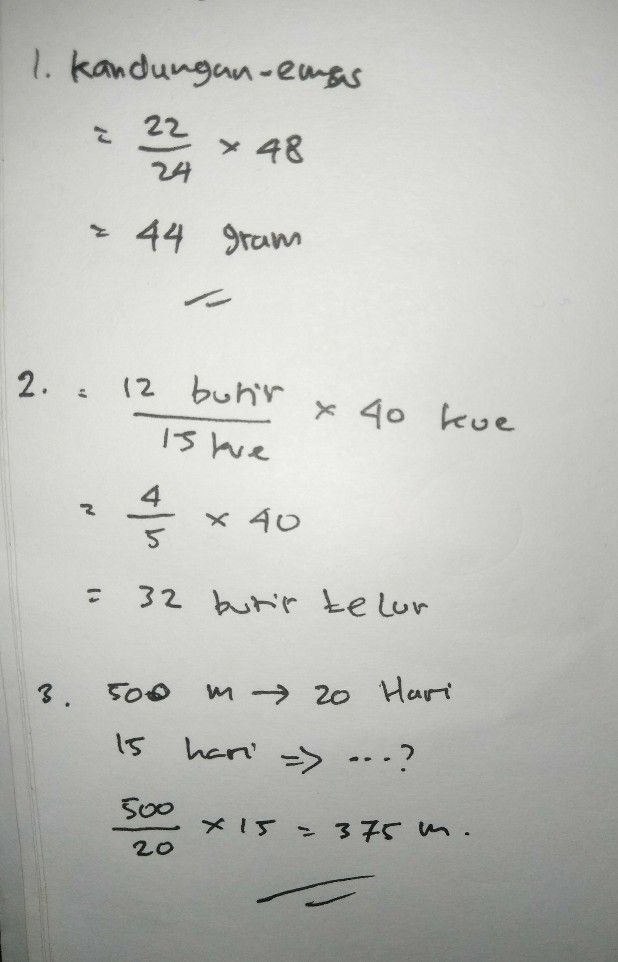 1. kandungan-emas
= 22/24 × 48
= 44 gram
2. = 12 butir/15 kue × 40 kue
= 4/5 × 40
= 32 butir telur
3. 500 m → 20 Hari
15 hari => ...?
500/20 × 15 = 375 m.